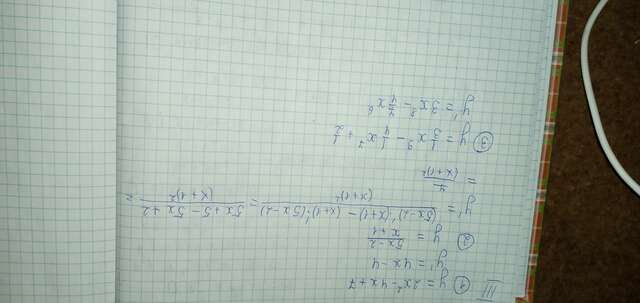 III ① y = 2x² - 4x + 7
y' = 4x - 4
② y = (5x-2)/(x+1)
y' = ((5x-2)'·(x+1) - (x+1)'·(5x-2))/(x+1)² = (5x+5-5x+2)/(x+1)² =
= 7/(x+1)²
③ y = 1/3 x⁹ - 1/4 x⁷ + 1/2
y' = 3x⁸ - 7/4 x⁶